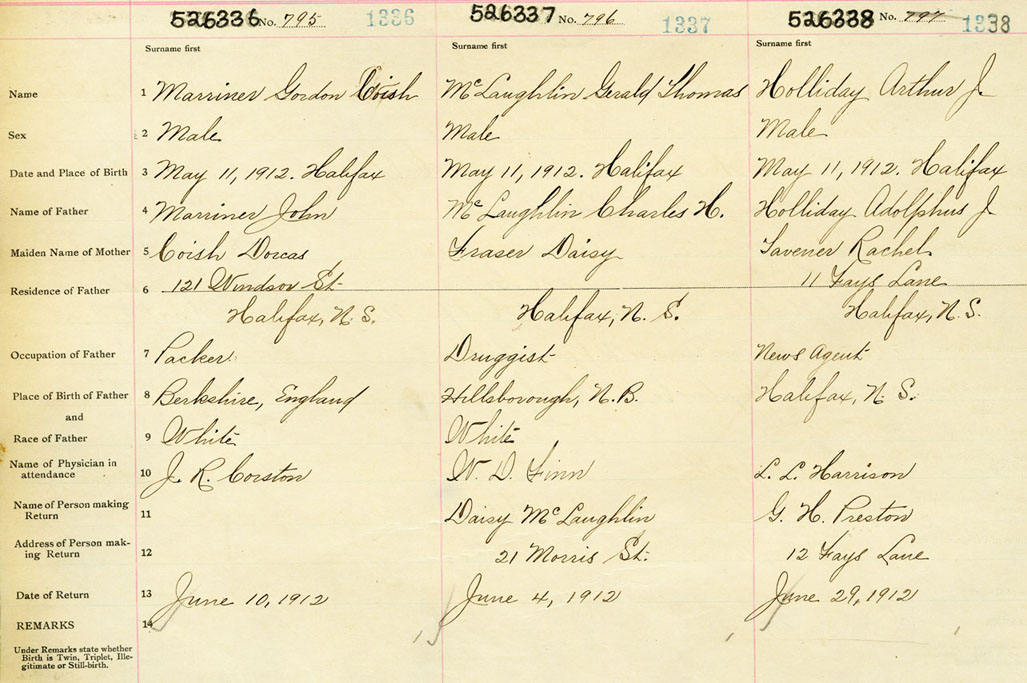 526336 No. 795 1336 526337 No. 796 1337 526338 No. 797 1338
Surname first Surname first Surname first
Name 1 Marriner Gordon Coish McLaughlin Gerald Thomas Holliday Arthur J.
Sex 2 Male Male Male
Date and Place of Birth 3 May 11, 1912. Halifax May 11, 1912. Halifax May 11, 1912. Halifax
Name of Father 4 Marriner John McLaughlin Charles H. Holliday Adolphus J
Maiden Name of Mother 5 Coish Dorcas Fraser Daisy Tavener Rachel
Residence of Father 6 121 Windsor St. 11 Fays Lane
Halifax, N.S. Halifax, N.S. Halifax, N.S.
Occupation of Father 7 Packer Druggist News Agent
Place of Birth of Father 8 Berkshire, England Hillsborough, N.B. Halifax, N.S.
and
Race of Father 9 White White
Name of Physician in
attendance 10 J. R. Corston W. D. Finn L. L. Harrison
Name of Person making
Return 11 Daisy McLaughlin G. H. Preston
Address of Person mak-
ing Return 12 21 Morris St. 12 Fays Lane
Date of Return 13 June 10, 1912 June 4, 1912 June 29, 1912
REMARKS 14
Under Remarks state whether
Birth is Twin, Triplet, Ille-
gitimate or Still-birth.